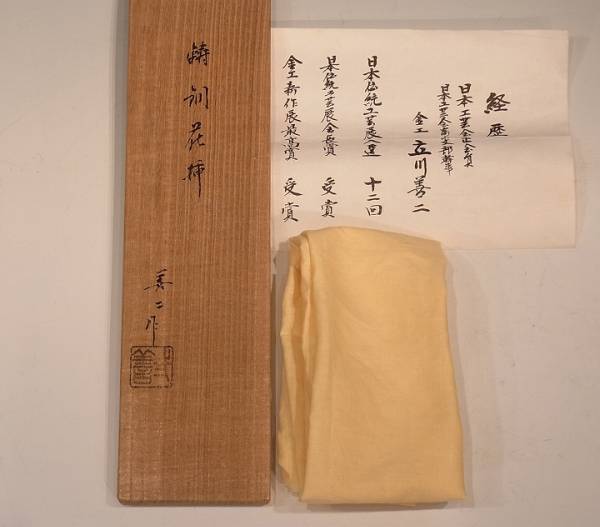 経歴
日本工芸会正会員
日本工芸会富山支部幹事
金工 立川善二
日本伝統工芸展入選 十二回
日本伝統工芸展 受賞
金工新作展最高賞 受賞
鋳銅花挿
善二作